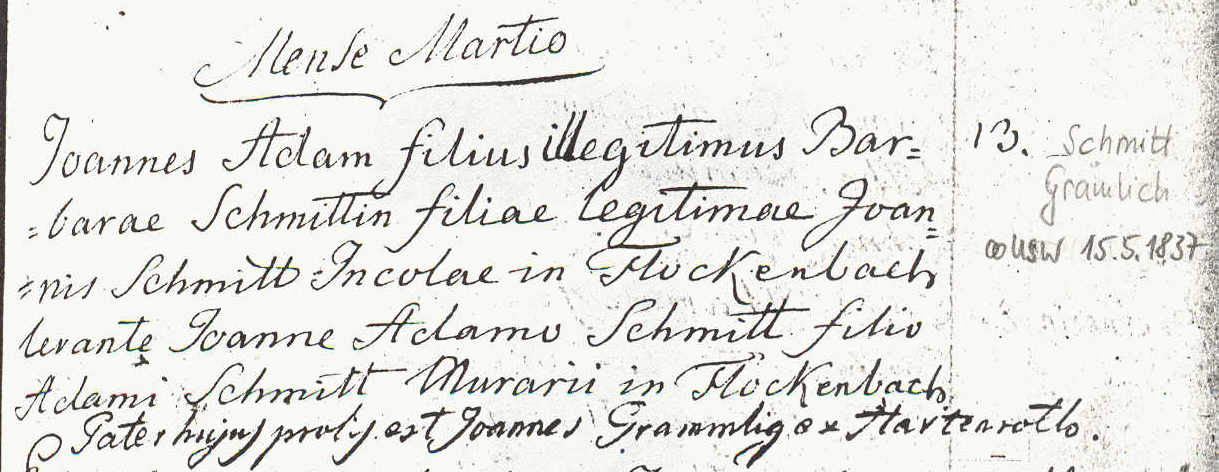 Mense Martio
Joannes Adam filius illegitimus Bar=
=barae Schmittin filiae legitimae Joan=
=nis Schmitt Incolae in Flockenbach
levante Joanne Adamo Schmitt filio
Adami Schmitt Murarii in Flockenbach
Pater hujus prolis est Joannes Grammlig ex Hartenroth.
13.
Schmitt
Gramlich
∞ USW 15.5.1837